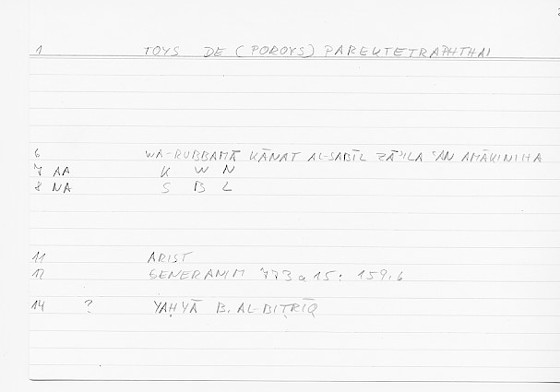 1 TOYS DE (POROYS) PAREKTETRAPHTHAI
6 WA-RUBBAMĀ KĀNAT AL-SABĪL ZĀʾILA ʿAN AMĀKINIHA
7 AA K W N
8 NA S B L
11 ARIST
12 GENERANIM 773a15: 159.6
14 ? YAḤYĀ B. AL-BIṬRĪQ